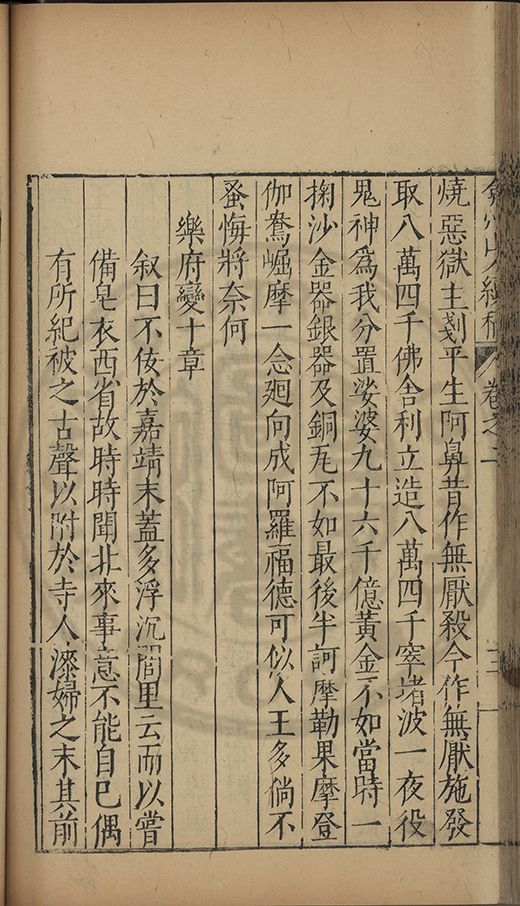 弇州山人續稿 卷之二
燒惡獄主剗平生阿鼻昔作無厭殺今作無厭施發
取八萬四千佛舍利立造八萬四千窣堵波一夜役
鬼神爲我分置娑婆九十六千億黃金不如當時一
掬沙金器銀器及銅瓦不如最後半訶摩勒果摩登
伽鴦崛摩一念廻向成阿羅福德可似人王多倘不
蚤悔將奈何
樂府變十章
叙曰不佞於嘉靖末蓋多浮沉閭里云而以嘗
備皂衣西省故時時聞北來事意不能自已偶
有所紀被之古聲以附於寺人漆婦之末其前